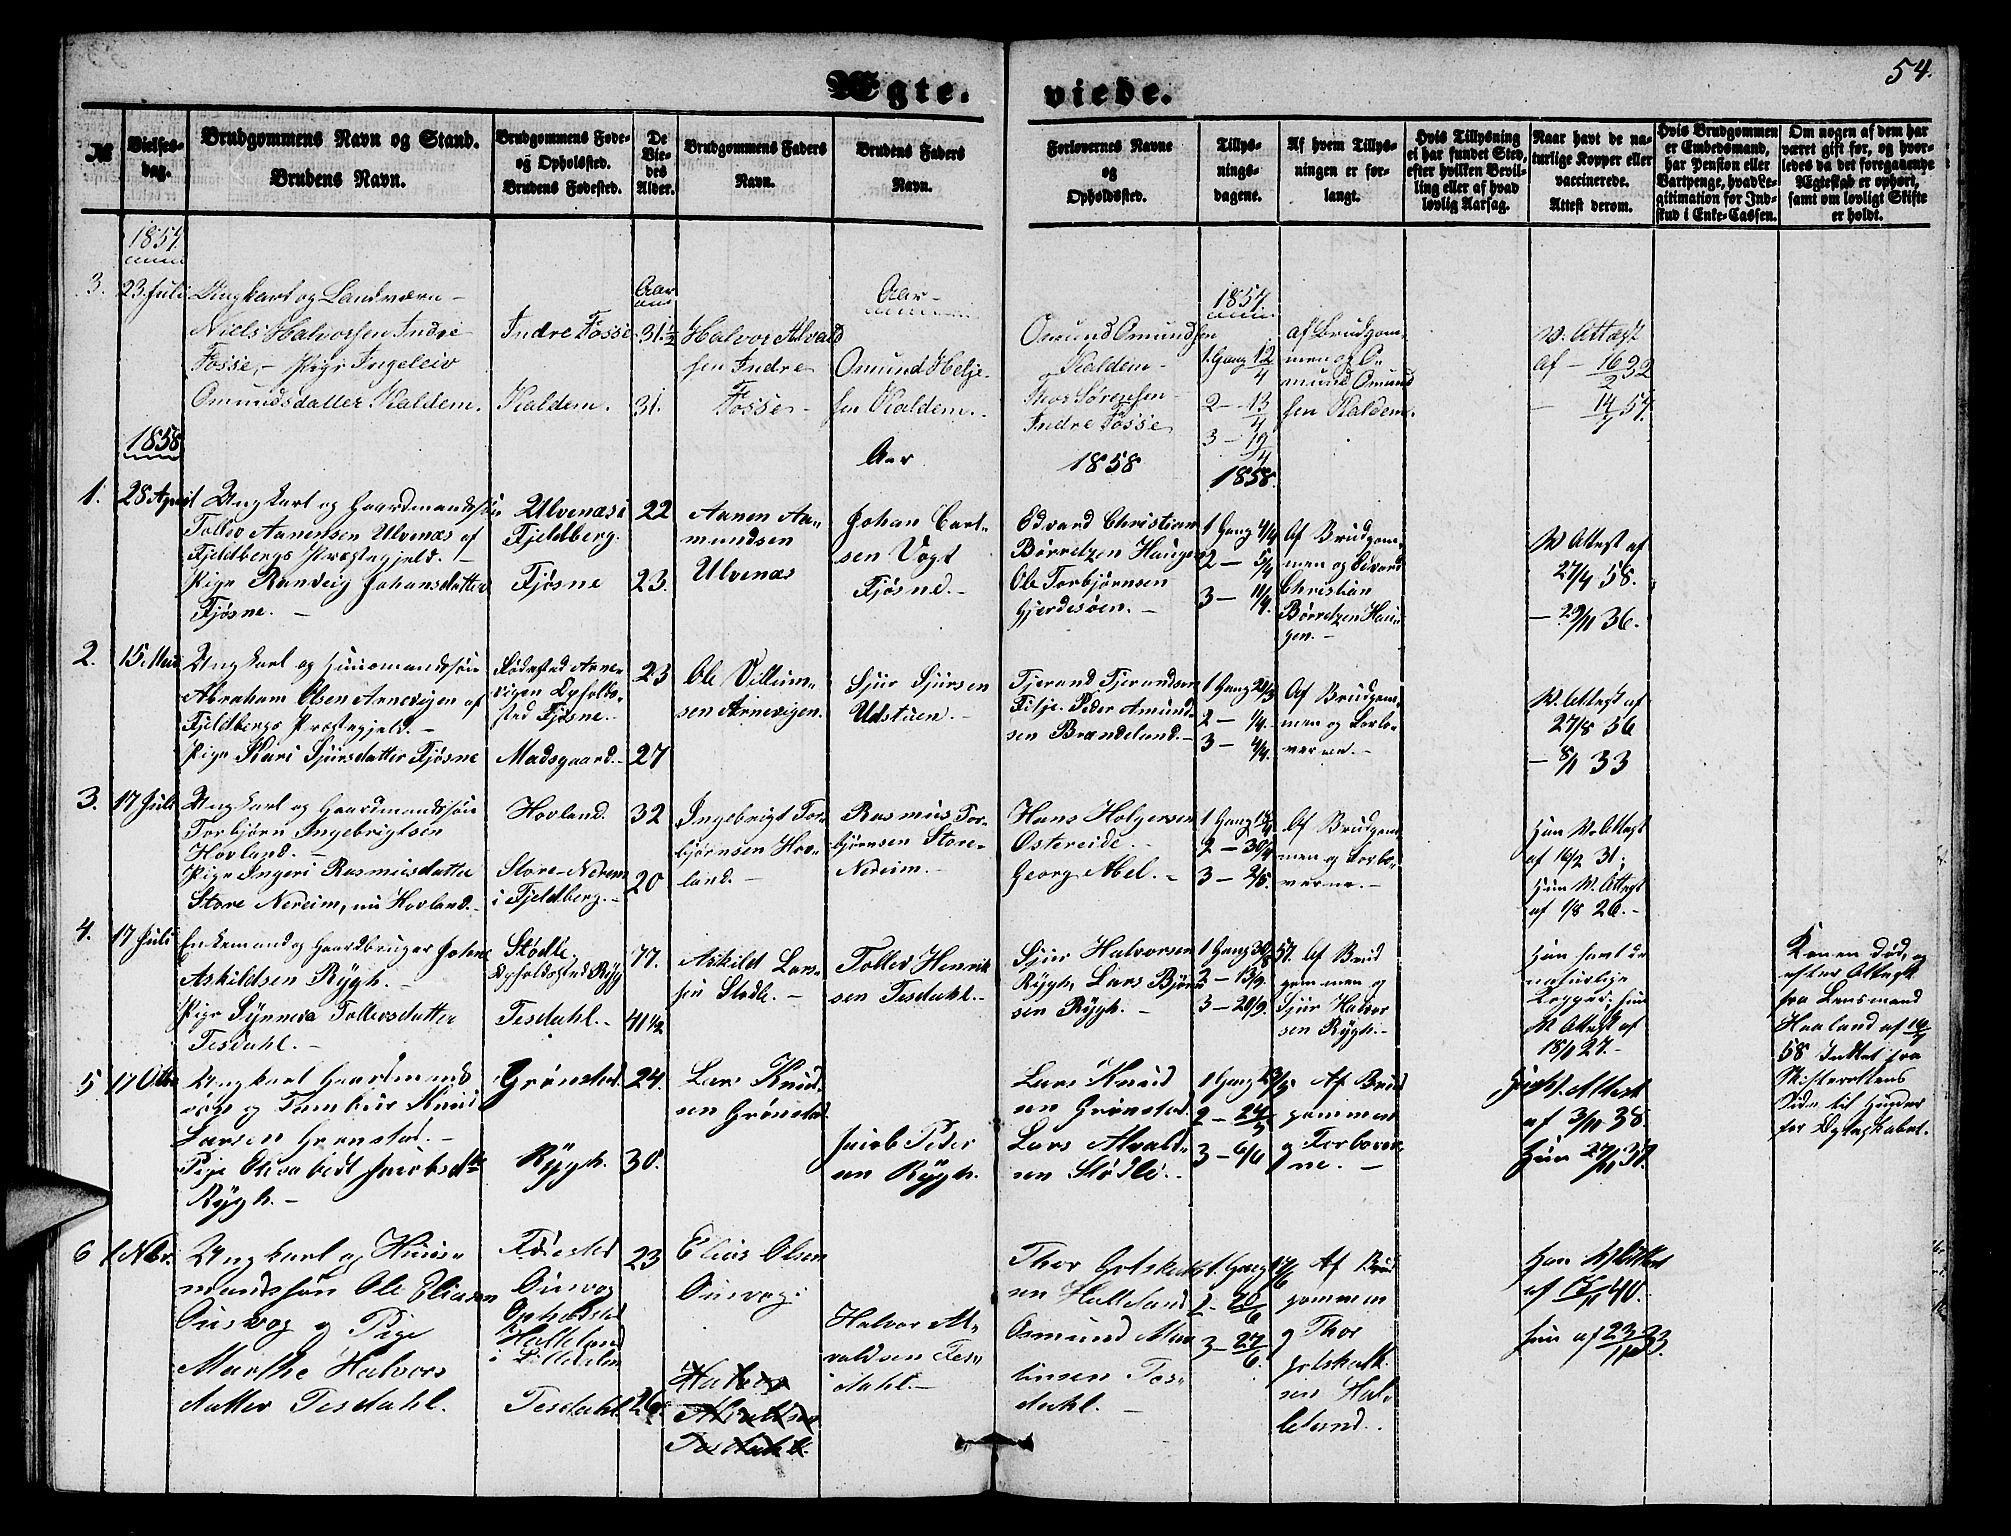 54.
Ægte-
viede.
№
Vielses-
dag.
Brudgommens Navn og Stand.
Brudens Navn.
Brudgommens Føde-
og Opholdsted.
Brudens Fødested.
De
Vie-
des
Alder.
Brudgommens Faders
Navn.
Brudens Faders
Navn.
Forlovernes Navne
og
Opholdssted.
Tillys-
nings-
dagene.
Af hvem Tillys-
ningen er for-
langt.
Hvis Tillysning
ei har fundet Sted,
efter hvilken Bevil-
ling eller af hvad
lovlig Aarsag.
Naar havt de na-
turlige Kopper eller
vaccinerede.
Attest derom.
Hvis Brudgommen
er Embedsmand,
har Pension eller
Vartpenge, hvad Le-
gitimation for Ind-
skud i Enke-Cassen.
Om nogen af dem har
været gift før, og hvor-
ledes da det foregaaende
Ægteskab er ophørt,
samt om lovligt Skifte
er holdt.
1857.
3.
23. Juli
Ungkarl og Landværn-
Niels Halvorsen Indre
Fosse, - Pige Ingeleiv
Omundsdatter Kaldem.
Indre Fosse
Kaldem.
Aar
31½
31.
Halvor Alvald
sen Indre
Fosse -
Aar -
Omund Helje-
sen Kaldem. -
Omund Omundsen
Kaldem -
Thor Sørensen -
Indre Fosse
1857.
1 Gang 12/4
2 - 13/4
3 - 19/4
af Brudgom-
men og O-
mund Omund
sen Kaldem.
V. Attest
af - 16/2 32
- 14/7 57.
1858
Aar
1858
1858.
1.
28 April
Ungkarl og Gaardmandssøn
Tollev Aanensen Ulvenæs af
Fjeldbergs Præstegjeld. -
Pige Ranveig Johansdatter
Fjøsne. -
Ulvenæs i
Fjeldberg.
Fjøsne
22
23.
Aanen Aa-
mundsen
Ulvenæs
Johan Carl-
sen Vogt
Fjøsne. -
Edvard Christian
Børretzen Haugen
Ole Torbjørnsen
Gjerdesøen. -
1 Gang 4/4
2 - 5/4
3 - 11/4.
Af Brudgom-
men og Edvard
Christian
Børretzen Hau-
gen. -
V. Attest af
27/4 58.
- 29/11 36.
2.
15. Mai
Ungkarl og Huusmandssøn
Abraham Olsen Arnevigen af
Fjeldbergs Præstegjeld. -
Pige Kari Sjursdatter Fjøsne
Fødested Arne-
vigen Opholds-
sted Fjøsne. -
Madsgaard. -
23
27
Ole Villum-
sen Arnevigen.
Sjur Sjursen
Udstuen. -
Tjerand Tjerandsen
Filje. Peder Amund-
sen Brandeland. -
1 Gang 28/3
2 - 1/4.
3 - 4/4.
Af Brudgom-
men og Forlo-
verne. -
V. Attest af
27/8 56
- 8/1 33
3.
17 Juli
Ungkarl og Gaardmandssøn
Torbjørn Ingebrigtsen
Hovland. -
Pige Ingeri Rasmusdatter
Store Nereim, nu Hovland. -
Hovland.
Store Nereim
i Fjeldberg. -
32
20
Ingebrigt Tor-
bjørnsen Hov-
land. -
Rasmus Tor-
bjørnsen Store-
Nereim. -
Hans Holgersen
Østereide. -
Georg Abel. -
1 Gang 18/4
2 - 30/4
3 - 2/5.
Af Brudgom-
men og Forlo-
verne. -
Han V. Attest
af 16/2 31.
Hun V. Attest
af 1/8 26. -
4.
17 Juli
Enkemand og Gaardbruger Johan
Askildsen Rygh. -
Pige Synneva Tollevsdatter
Tesdahl. -
Stødle,
Opholdssted Rygh
Tesdahl. -
77.
41½
Askild Lar-
sen Stødle. -
Tollev Henrik
sen Tesdahl. -
Sjur Halvorsen
Rygh, Lars Bjørn
sen Rygh. -
1 Gang 30/8 57.
2 - 13/9.
3 - 20/9.
Af Brud
gommen og
Sjur Halvor
sen Rygh. -
Han havt de
naturlige
Kopper, hun
V. Attest af
18/9 27. -
Konen død,
efter Attest
fra Lensmand
Haaland af 16/7
58 Intet fra
Skifterettens
Side til Hinder
for Ægteskabet.
5
17 Octbr
Ungkarl Gaardmands
søn og Tambur Knud
Larsen Grønstad. -
Pige Olava Jacobsdtr
Rygh. -
Grønstad.
Rygh.
24.
30.
Lars Knud
sen Grønstad
Jacob Peder
sen Rygh.
Lars Knud
sen Grønstad.
Lars Alvald-
sen Stødle. -
1 Gang 23/5
2 - 24/5
3 - 6/6
Af Brud
gommen
og Forlover-
ne. -
V. Attest
af 3/11 38.
Hun 27/11 37.
6
1 Nbr.
Ungkarl og Huus-
mandssøn Ole Eliasen
Ousvog og Pige
Marthe Halvors
datter Tesdahl.
Fødested
Ousvog
Opholdssted
Halleland
i
Tesdahl
23
26.
Elias Olsen
Ousvog.
Halvor
Alvaldsen
Tesdahl.
Halvor Al-
valdsen Tes-
dahl. -
Thor
sen Halleland
Osmund
Tes-
dahl. -
1 Gang 17/6
2 - 20/6
3 - 27/6.
Af Brud
gommen
og Thor
sen Hal-
leland.
Han V. Attest
af 15/11 40.
hun af 23/11 33.